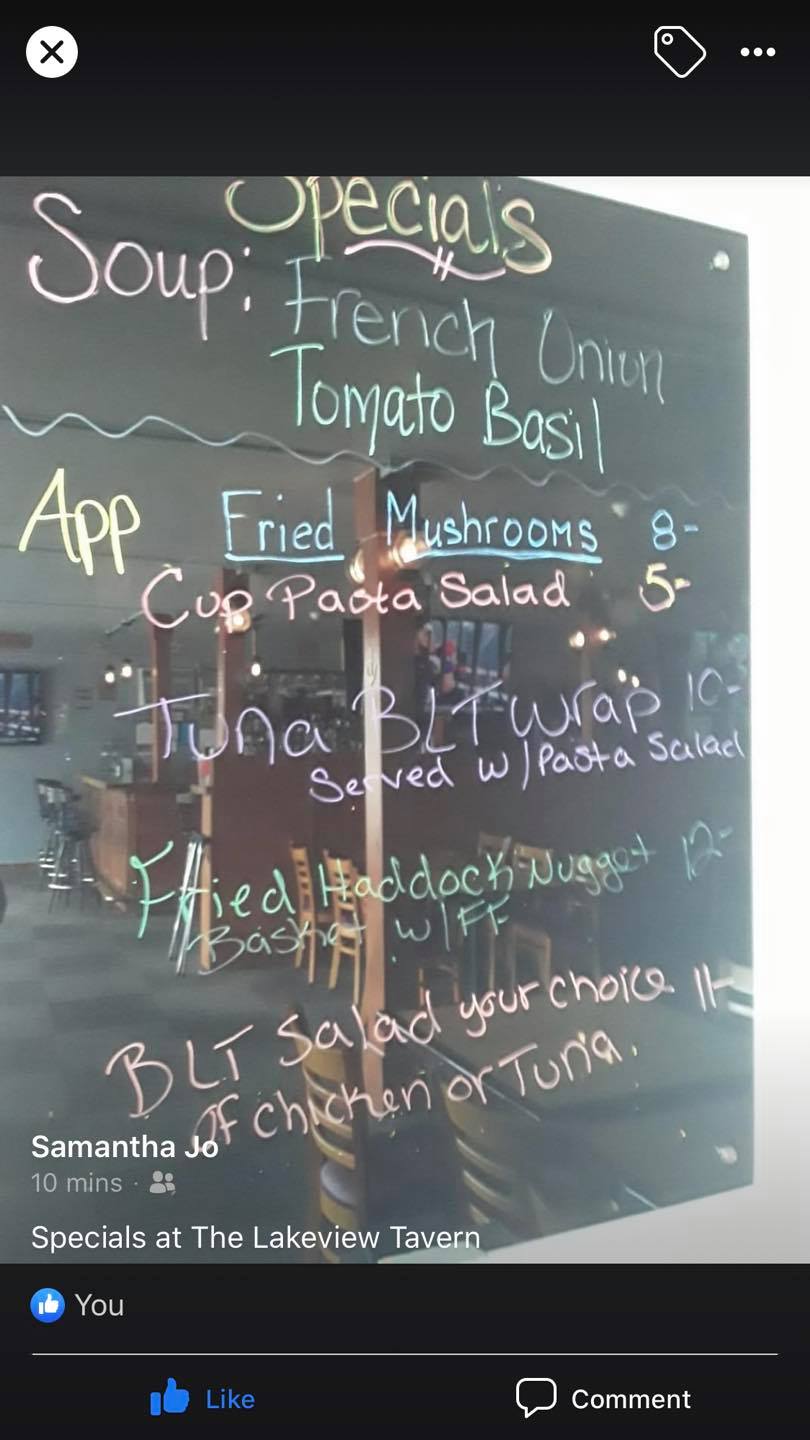 Specials
Soup: French Onion
Tomato Basil
App Fried Mushrooms 8-
Cup Pasta Salad 5-
Tuna BLT wrap 10-
Served w/Pasta Salad
Fried Haddock Nugget 12-
Basket w/FF
BLT Salad your choice 11-
of chicken or Tuna.
Samantha Jo
10 mins ·
Specials at The Lakeview Tavern
You
Like Comment